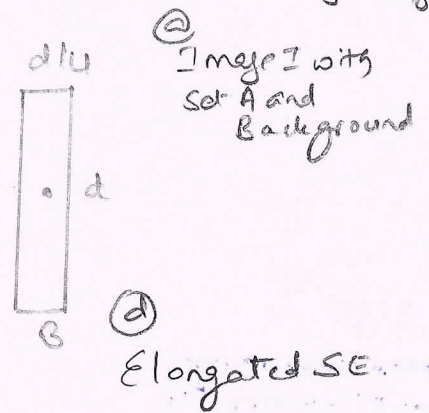 ⓐ
d/4
Image I with
Set A and
Background
d
B
ⓓ
Elongated SE.